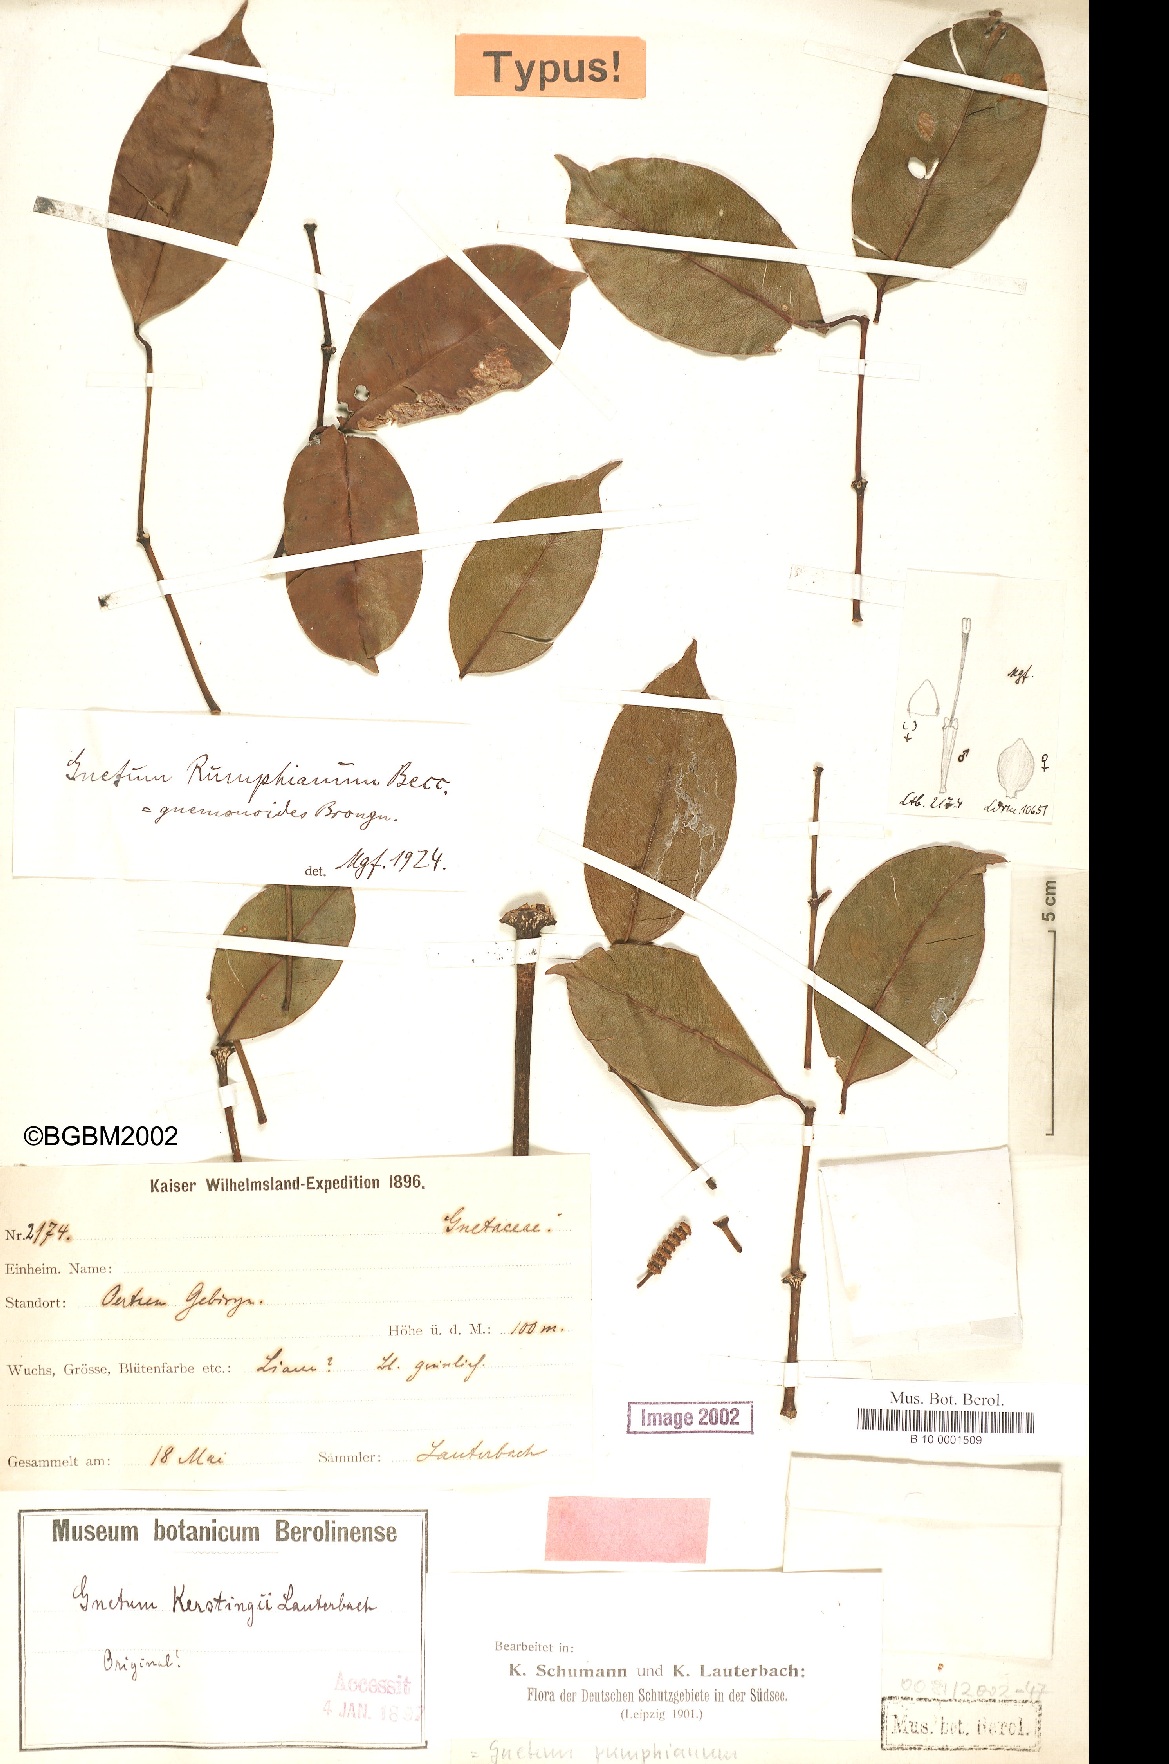 Typus!
Gnetum Rumphianum Becc.
= gnemonoides Brongn.
det. Mgf. 1924.
Mgf.
♀
♂
♀
Ltb. 2174
Ldrm. 10651
5 cm
©BGBM2002
Kaiser Wilhelmsland-Expedition 1896.
Nr. 2174.
Gnetaceae.
Einheim. Name:
Standort: Oertzen Gebirge.
Höhe ü. d. M.: 100 m.
Wuchs, Grösse, Blütenfarbe etc.: Liane? Bl. grünlich.
Gesammelt am: 18 Mai Sammler: Lauterbach
Image 2002
Mus. Bot. Berol.
B 10 0001509
Museum botanicum Berolinense
Gnetum Kerstingii Lauterbach
Original!
Accessit
4 JAN. 18
Bearbeitet in:
K. Schumann und K. Lauterbach:
Flora der Deutschen Schutzgebiete in der Südsee.
(Leipzig 1901.)
= Gnetum rumphianum
Mus. bot. Berol.